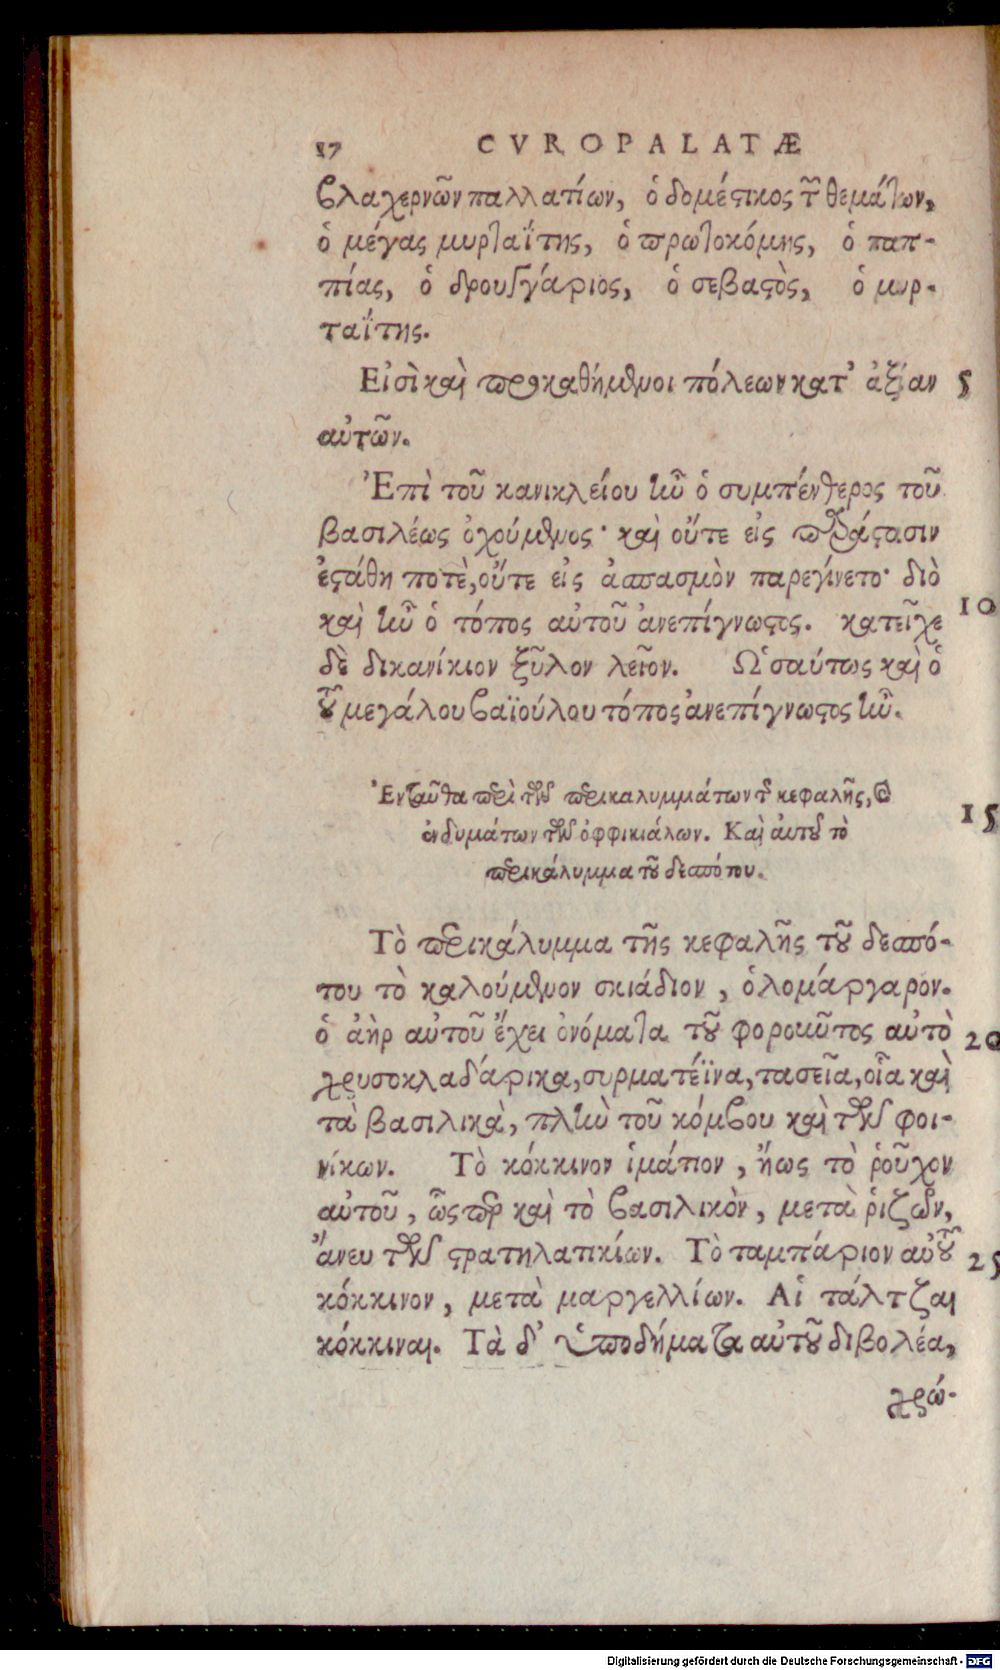 17 CVROPALATÆ
βλαχερνῶν παλλατίων, ὁ δομέστικος τῶν θεμάτων,
ὁ μέγας μυρταΐτης, ὁ πρωτοκόμης, ὁ παπ-
πίας, ὁ δρουγγάριος, ὁ σεβαστὸς, ὁ μυρ-
ταΐτης.
Εἰσὶ καὶ προκαθήμενοι πόλεων κατ' ἀξίαν 5
αὐτῶν.
Ἐπὶ τοῦ κανικλείου ἦν ὁ συμπένθερος τοῦ
βασιλέως ὁχούμνος· καὶ οὔτε εἰς παράστασιν
ἐστάθη ποτὲ, οὔτε εἰς ἀσπασμὸν παρεγίνετο· διὸ
καὶ ἦν ὁ τόπος αὐτοῦ ἀνεπίγνωστος. κατεῖχε 10
δὲ δικανίκιον ξῦλον λεῖον. Ὡσαύτως καὶ ὁ
τοῦ μεγάλου βαϊούλου τόπος ἀνεπίγνωστος ἦν.
Ἐνταῦθα περὶ τῶν περικαλυμμάτων τῆς κεφαλῆς, καὶ
ἐνδυμάτων τῶν ὀφφικιάλων. Καὶ αὐτοῦ τὸ 15
περικάλυμμα τοῦ δεσπότου.
Τὸ περικάλυμμα τῆς κεφαλῆς τοῦ δεσπό-
του τὸ καλούμενον σκιάδιον, ὁλομάργαρον.
ὁ ἀὴρ αὐτοῦ ἔχει ὀνόματα τοῦ φοροῦντος αὐτὸ 20
χρυσοκλαδάρικα, συρματέϊνα, τασεῖα, οἷα καὶ
τὰ βασιλικὰ, πλὴν τοῦ κόμβου καὶ τῶν φοι-
νίκων. Τὸ κόκκινον ἱμάτιον, ἤως τὸ ῥοῦχον
αὐτοῦ, ὥσπερ καὶ τὸ βασιλικὸν, μετὰ ῥιζῶν,
ἄνευ τῶν στρατηλατικίων. Τὸ ταμπάριον αὐτοῦ 25
κόκκινον, μετὰ μαργελλίων. Αἱ τάλτζαι
κόκκιναι. Τὰ δ' ὑποδήματα αὐτοῦ διβολέα,
χρώ-
Digitalisierung gefördert durch die Deutsche Forschungsgemeinschaft - DFG